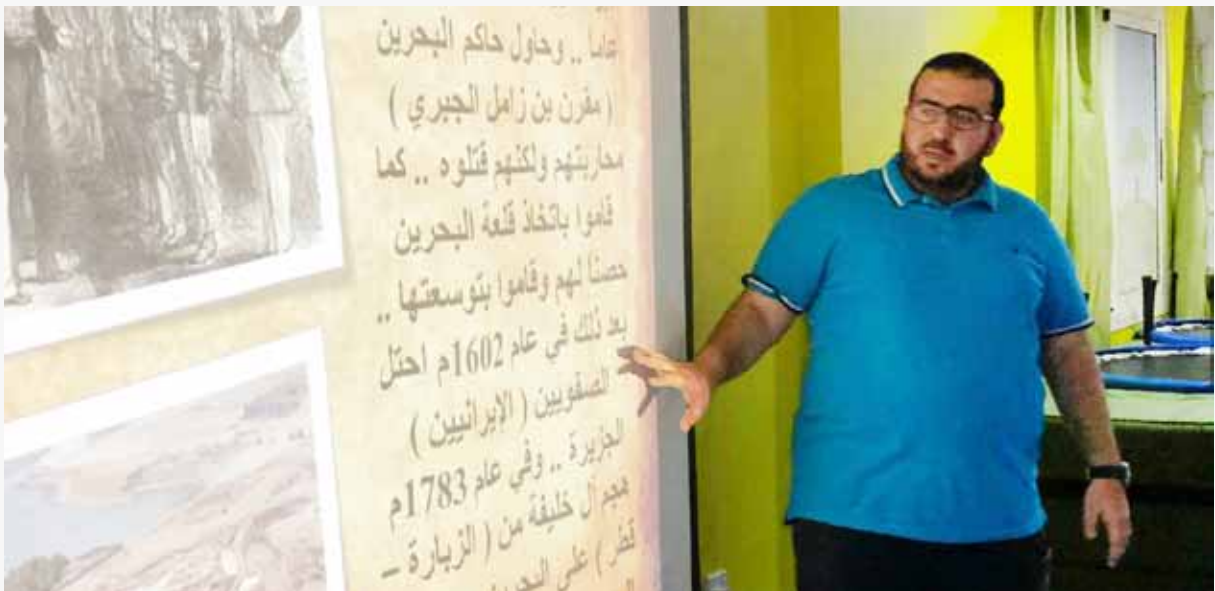 عاما .. وحاول حاكم البحرين
( مقرن بن زامل الجبري )
محاربتهم ولكنهم قتلوه .. كما
قاموا باتخاذ قلعة البحرين
حصنا لهم وقاموا بتوسعتها ..
بعد ذلك في عام 1602م احتل
الصفويين ( الإيرانيين )
الجزيرة .. وفي عام 1783م
هجم آل خليفة من ( الزبارة –
قطر ) على البحرين